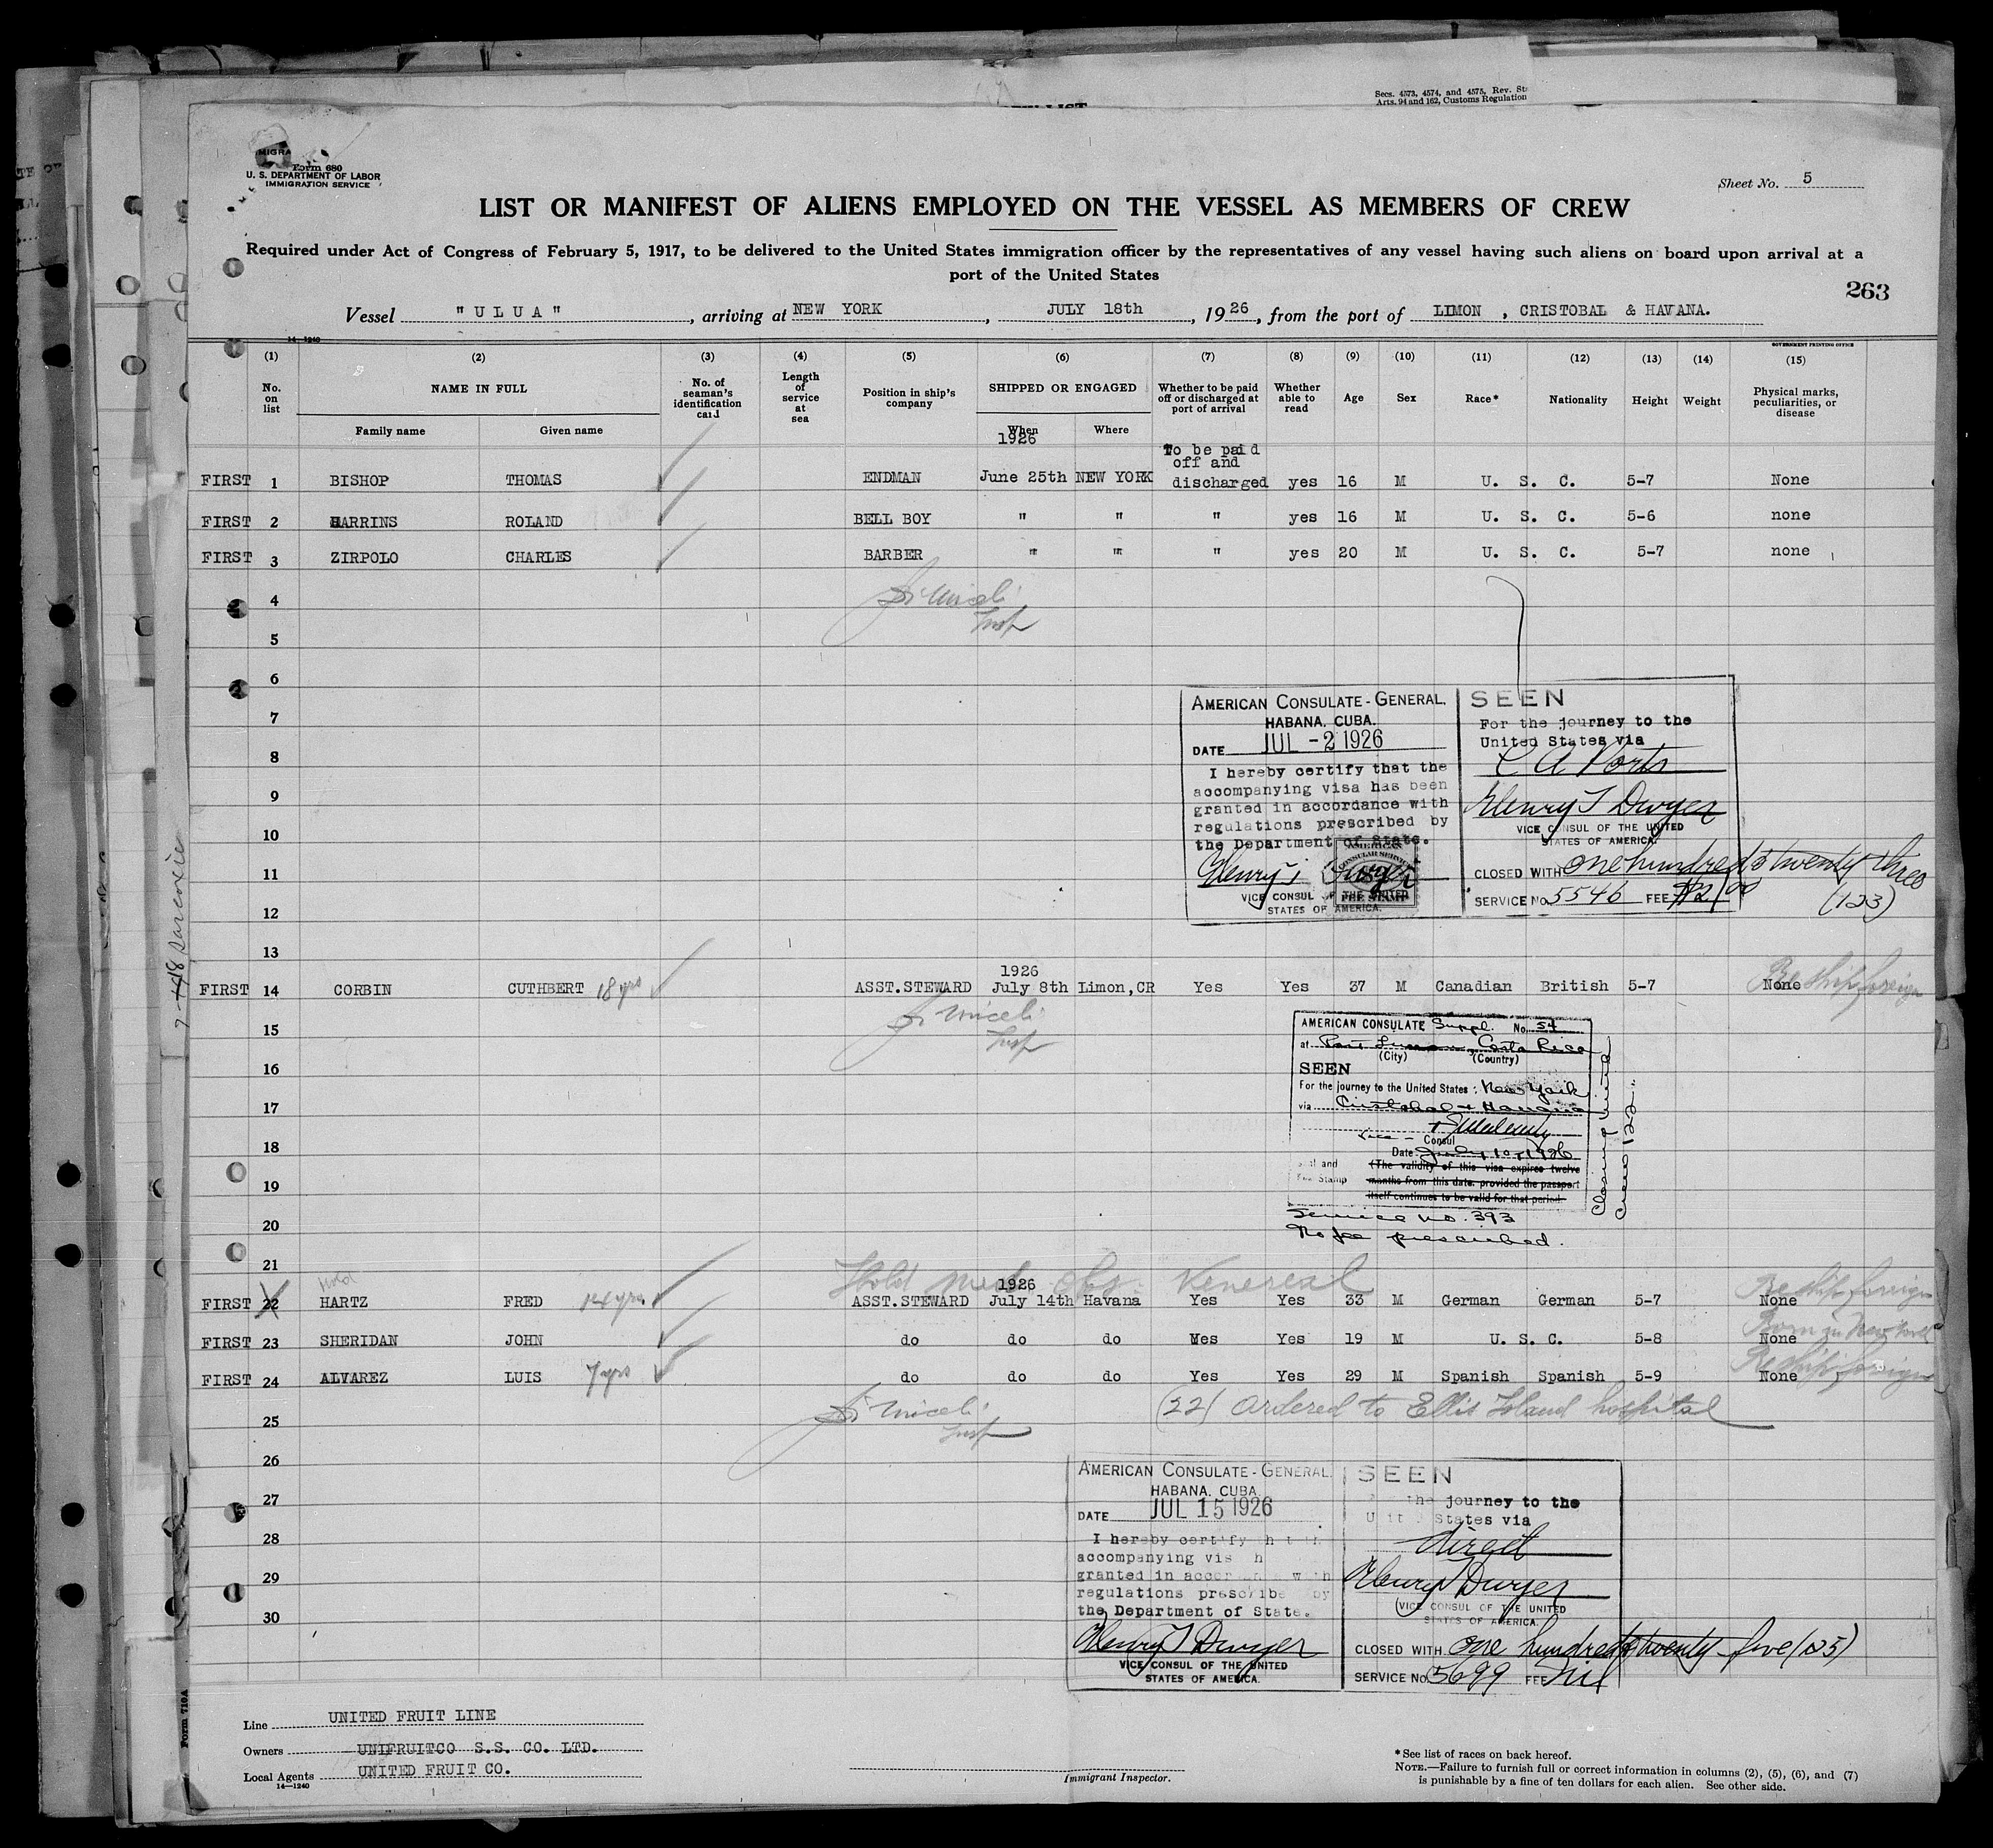 Secs. 4573, 4574, and 4575, Rev. St
Arts. 94 and 162, Customs Regulation
Form 680
U. S. DEPARTMENT OF LABOR
IMMIGRATION SERVICE
Sheet No. 5
LIST OR MANIFEST OF ALIENS EMPLOYED ON THE VESSEL AS MEMBERS OF CREW
Required under Act of Congress of February 5, 1917, to be delivered to the United States immigration officer by the representatives of any vessel having such aliens on board upon arrival at a
port of the United States
263
Vessel "ULUA", arriving at NEW YORK, JULY 18th, 1926, from the port of LIMON, CRISTOBAL & HAVANA.
14—1240
GOVERNMENT PRINTING OFFICE
(1) (2) (3) (4) (5) (6) (7) (8) (9) (10) (11) (12) (13) (14) (15)
No. on list
NAME IN FULL
Family name
Given name
No. of seaman's identification card
Length of service at sea
Position in ship's company
SHIPPED OR ENGAGED
When
Where
Whether to be paid off or discharged at port of arrival
Whether able to read
Age
Sex
Race*
Nationality
Height
Weight
Physical marks, peculiarities, or disease
1926
To be paid off and
FIRST 1 BISHOP THOMAS ENDMAN June 25th NEW YORK discharged yes 16 M U. S. C. 5-7 None
FIRST 2 HARRINS ROLAND BELL BOY " " " yes 16 M U. S. C. 5-6 none
FIRST 3 ZIRPOLO CHARLES BARBER " " " yes 20 M U. S. C. 5-7 none
4
Insp
5
6
7
8
9
10
11
12
AMERICAN CONSULATE-GENERAL.
HABANA. CUBA.
DATE JUL -2 1926
I hereby certify that the
accompanying visa has been
granted in accordance with
regulations prescribed by
the Department of State.
Henry T Dwyer
VICE CONSUL OF THE UNITED
STATES OF AMERICA.
AMERICAN
CONSULAR SERVICE
FEE STAMP
SEEN
For the journey to the
United States via
C A Ports
Henry T Dwyer
VICE CONSUL OF THE UNITED
STATES OF AMERICA.
CLOSED WITH one hundred & twenty three
(123)
SERVICE No. 5546 FEE
13
1926
FIRST 14 CORBIN CUTHBERT 18 yrs ASST.STEWARD July 8th Limon, CR Yes Yes 37 M Canadian British 5-7 None Reship foreign
15
Insp
16
17
18
19
20
21
AMERICAN CONSULATE Suppl. No. 54
at Port Limon, Costa Rica
(City) (Country)
SEEN
For the journey to the United States: New York
via Cristobal & Havana
Vice - Consul
Date July 10, 1926
(The validity of this visa expires twelve
months from this date, provided the passport
itself continues to be valid for that period.
Service no. 393
No fee prescribed.
Closed with
Crew 122.
Hold med. Venereal
Hold
1926
FIRST 22 HARTZ FRED 14 yrs. ASST.STEWARD July 14th Havana Yes Yes 33 M German German 5-7 None Reship foreign
FIRST 23 SHERIDAN JOHN do do do Yes Yes 19 M U. S. C. 5-8 None Born in New York
FIRST 24 ALVAREZ LUIS 7 yrs do do do Yes Yes 29 M Spanish Spanish 5-9 None Reship foreign
25
(22) ordered to Ellis Island hospital
Insp
26
27
28
29
30
AMERICAN CONSULATE-GENERAL.
HABANA. CUBA
DATE JUL 15 1926
I hereby certify
accompanying
granted in
regulations
the Department of State.
Henry T Dwyer
VICE CONSUL OF THE UNITED
STATES OF AMERICA.
SEEN
the journey to the
States via
direct
Henry T Dwyer
VICE CONSUL OF THE UNITED
STATES OF AMERICA.
CLOSED WITH one hundred & twenty-five (125)
SERVICE No. 5699 FEE Nil
Form 710A
Line UNITED FRUIT LINE
Owners UNIFRUITCO S.S. CO. LTD.
Local Agents UNITED FRUIT CO.
14—1240
Immigrant Inspector.
*See list of races on back hereof.
NOTE.—Failure to furnish full or correct information in columns (2), (5), (6), and (7)
is punishable by a fine of ten dollars for each alien. See other side.